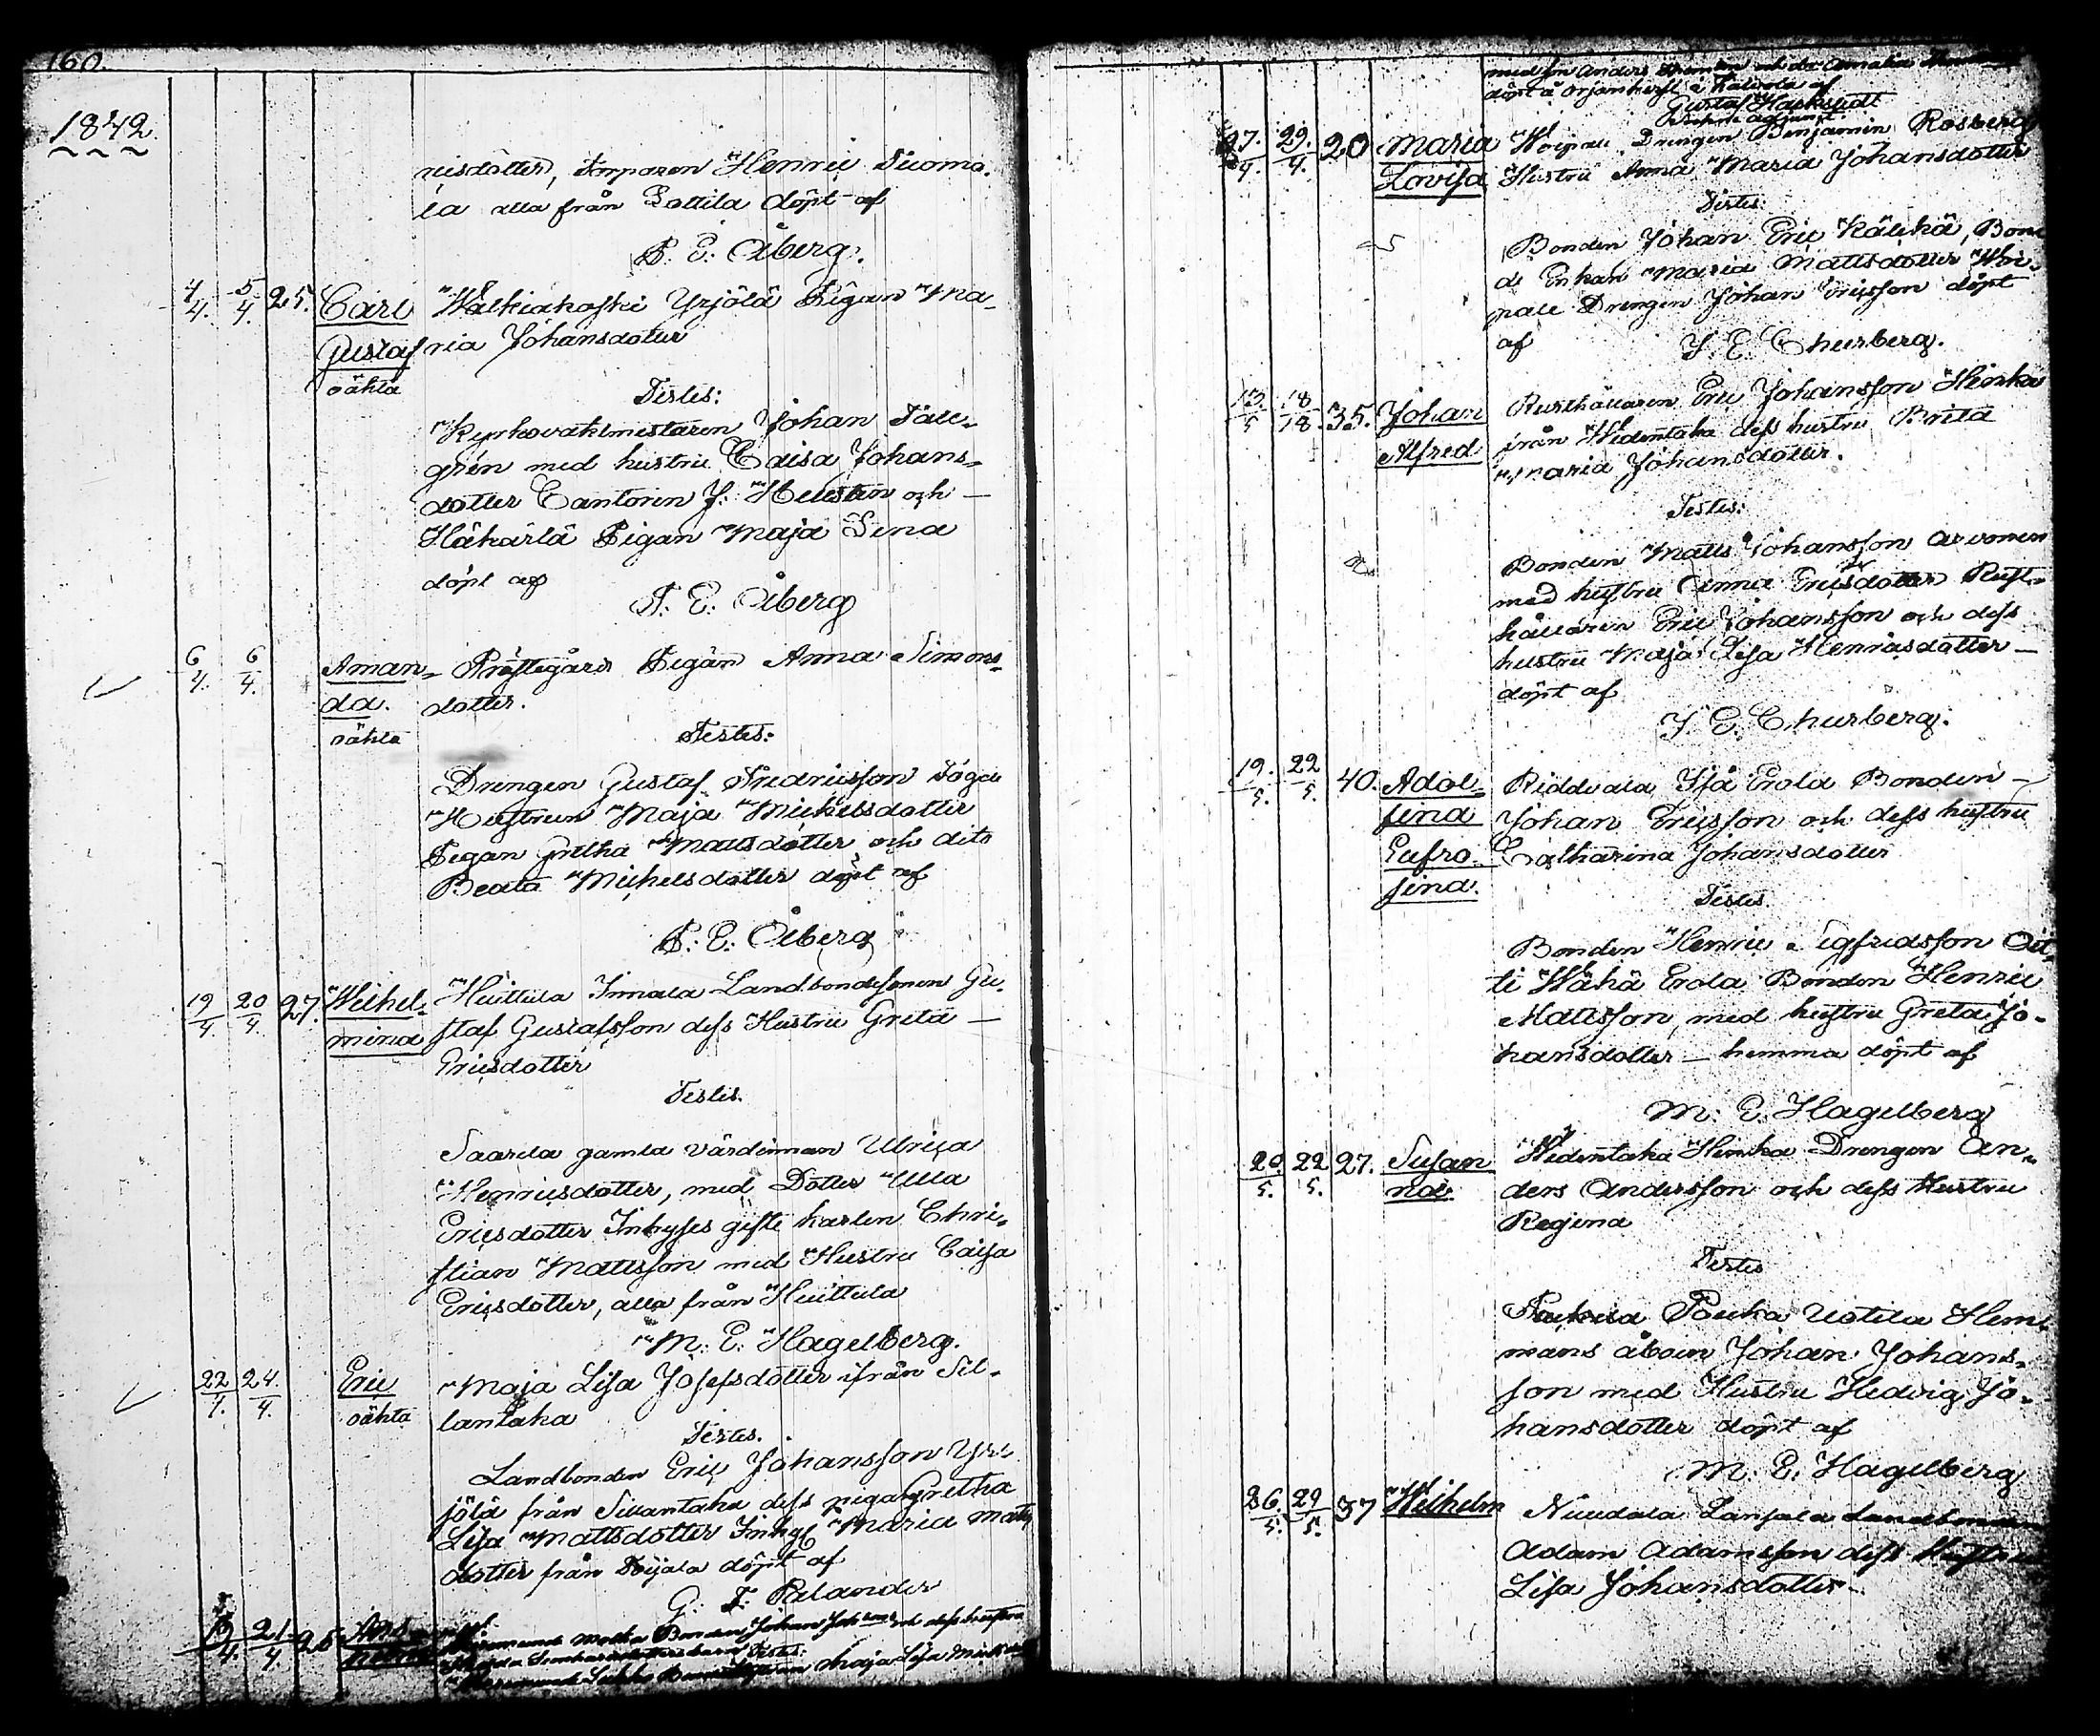 160.
1842.
ricsdotter, Inspozen Henric Suoma-
la alla från Lottila döpt af
F. E. Åberg.
4/4. 5/4. 25. Carl Walkiakoski Yrjölä Pigan Ma-
Gustaf ria Johansdotter
oäkta
Testes:
Kyrkovaktmestaren Johan Täll-
grén med hustru Caisa Johans-
dotter Cantorin J. Hellstén och
Häkärlä Pigan Maja Lena
döpt af
F. E. Åberg
6/4. 6/4. Aman- Prästegårds Pigan Anna Simons-
da. dotter.
oäkta
Testes:
Drengen Gustaf Fredricsson
Hustrun Maja Mickelsdotter
Pigan Gretha Mattsdotter och dito
Beata Michelsdotter döpt af
F. E. Åberg
19/4 20/4. 27. Wilhel- Huittula Innala Landbondesonen Gu-
mina staf Gustafsson dess Hustru Greta
Ericsdotter
Testes.
Saarela gamla värdinnan Ulrica
Henricsdotter, med Dotter Ulla
Ericsdotter Inhyses gifte karlen Chri-
stian Mattsson med Hustru Caisa
Ericsdotter, alla från Huittula
M. E. Hagelberg.
22/4. 24/4. Eric Maja Lisa Josefsdotter ifrån Sil-
oäkta lantaka
Testes.
Landbonden Eric Johansson Yr-
jölä från Sillantaka dess piga Gretha
Lisa Mattsdotter Inhys Maria Matts
dotter från Toijala döpt af
G. F. Relander
19/4. 21/4. 25 Bonden Johan och dess hustru
Testes:
Maja Lisa
med son Anders och Amalia
döpt å Kalvola af
Gustaf Hackstedt
27/4. 29/4. 20 Maria Woipau Drengen Benjamin Rosberg
Lovisa Hustru Anna Maria Johansdotter
Testes:
Bonden Johan Eric Kälikä, Bon-
de Enkan Maria Mattsdotter Woi-
pale Drengen Johan Ericsson döpt
af J. E. Churberg.
13/5 18/18. 35. Johan Rusthållaren Eric Johansson Heinka
Alfred från Widentaka dess hustru Brita
Maria Johansdotter.
Testes:
Bonden Matts Johansson Arvonen
med hustru Anna Ericsdotter Rust-
hållaren Eric Johansson och dess
hustru Maja Lisa Henricsdotter
döpt af
J. E. Churberg.
19/5. 22/5. 40. Adol- Riddvala Iso Erola Bonden
fina Johan Ericsson och dess hustru
Eufro- Catharina Johansdotter
sina.
Testes
Bonden Henric Sigfridsson Oit-
ti Wähä Erola Bonden Henric
Mattsson, med hustru Greta Jo-
hansdotter — hemma döpt af
M. E. Hagelberg
20/5. 22/5. 27. Susan Widentaka Heinka Drengen An-
na. ders Andersson och dess Hustru
Regina
Testes
Pouka Uotila Hem-
mans åboen Johan Johans-
son med Hustru Hedvig Jo-
hansdotter döpt af
M. E. Hagelberg
26/5. 29/5. 37 Wilhelm Niudala Lansala Landbonden
Adam Adamsson dess Hustru
Lisa Johansdotter